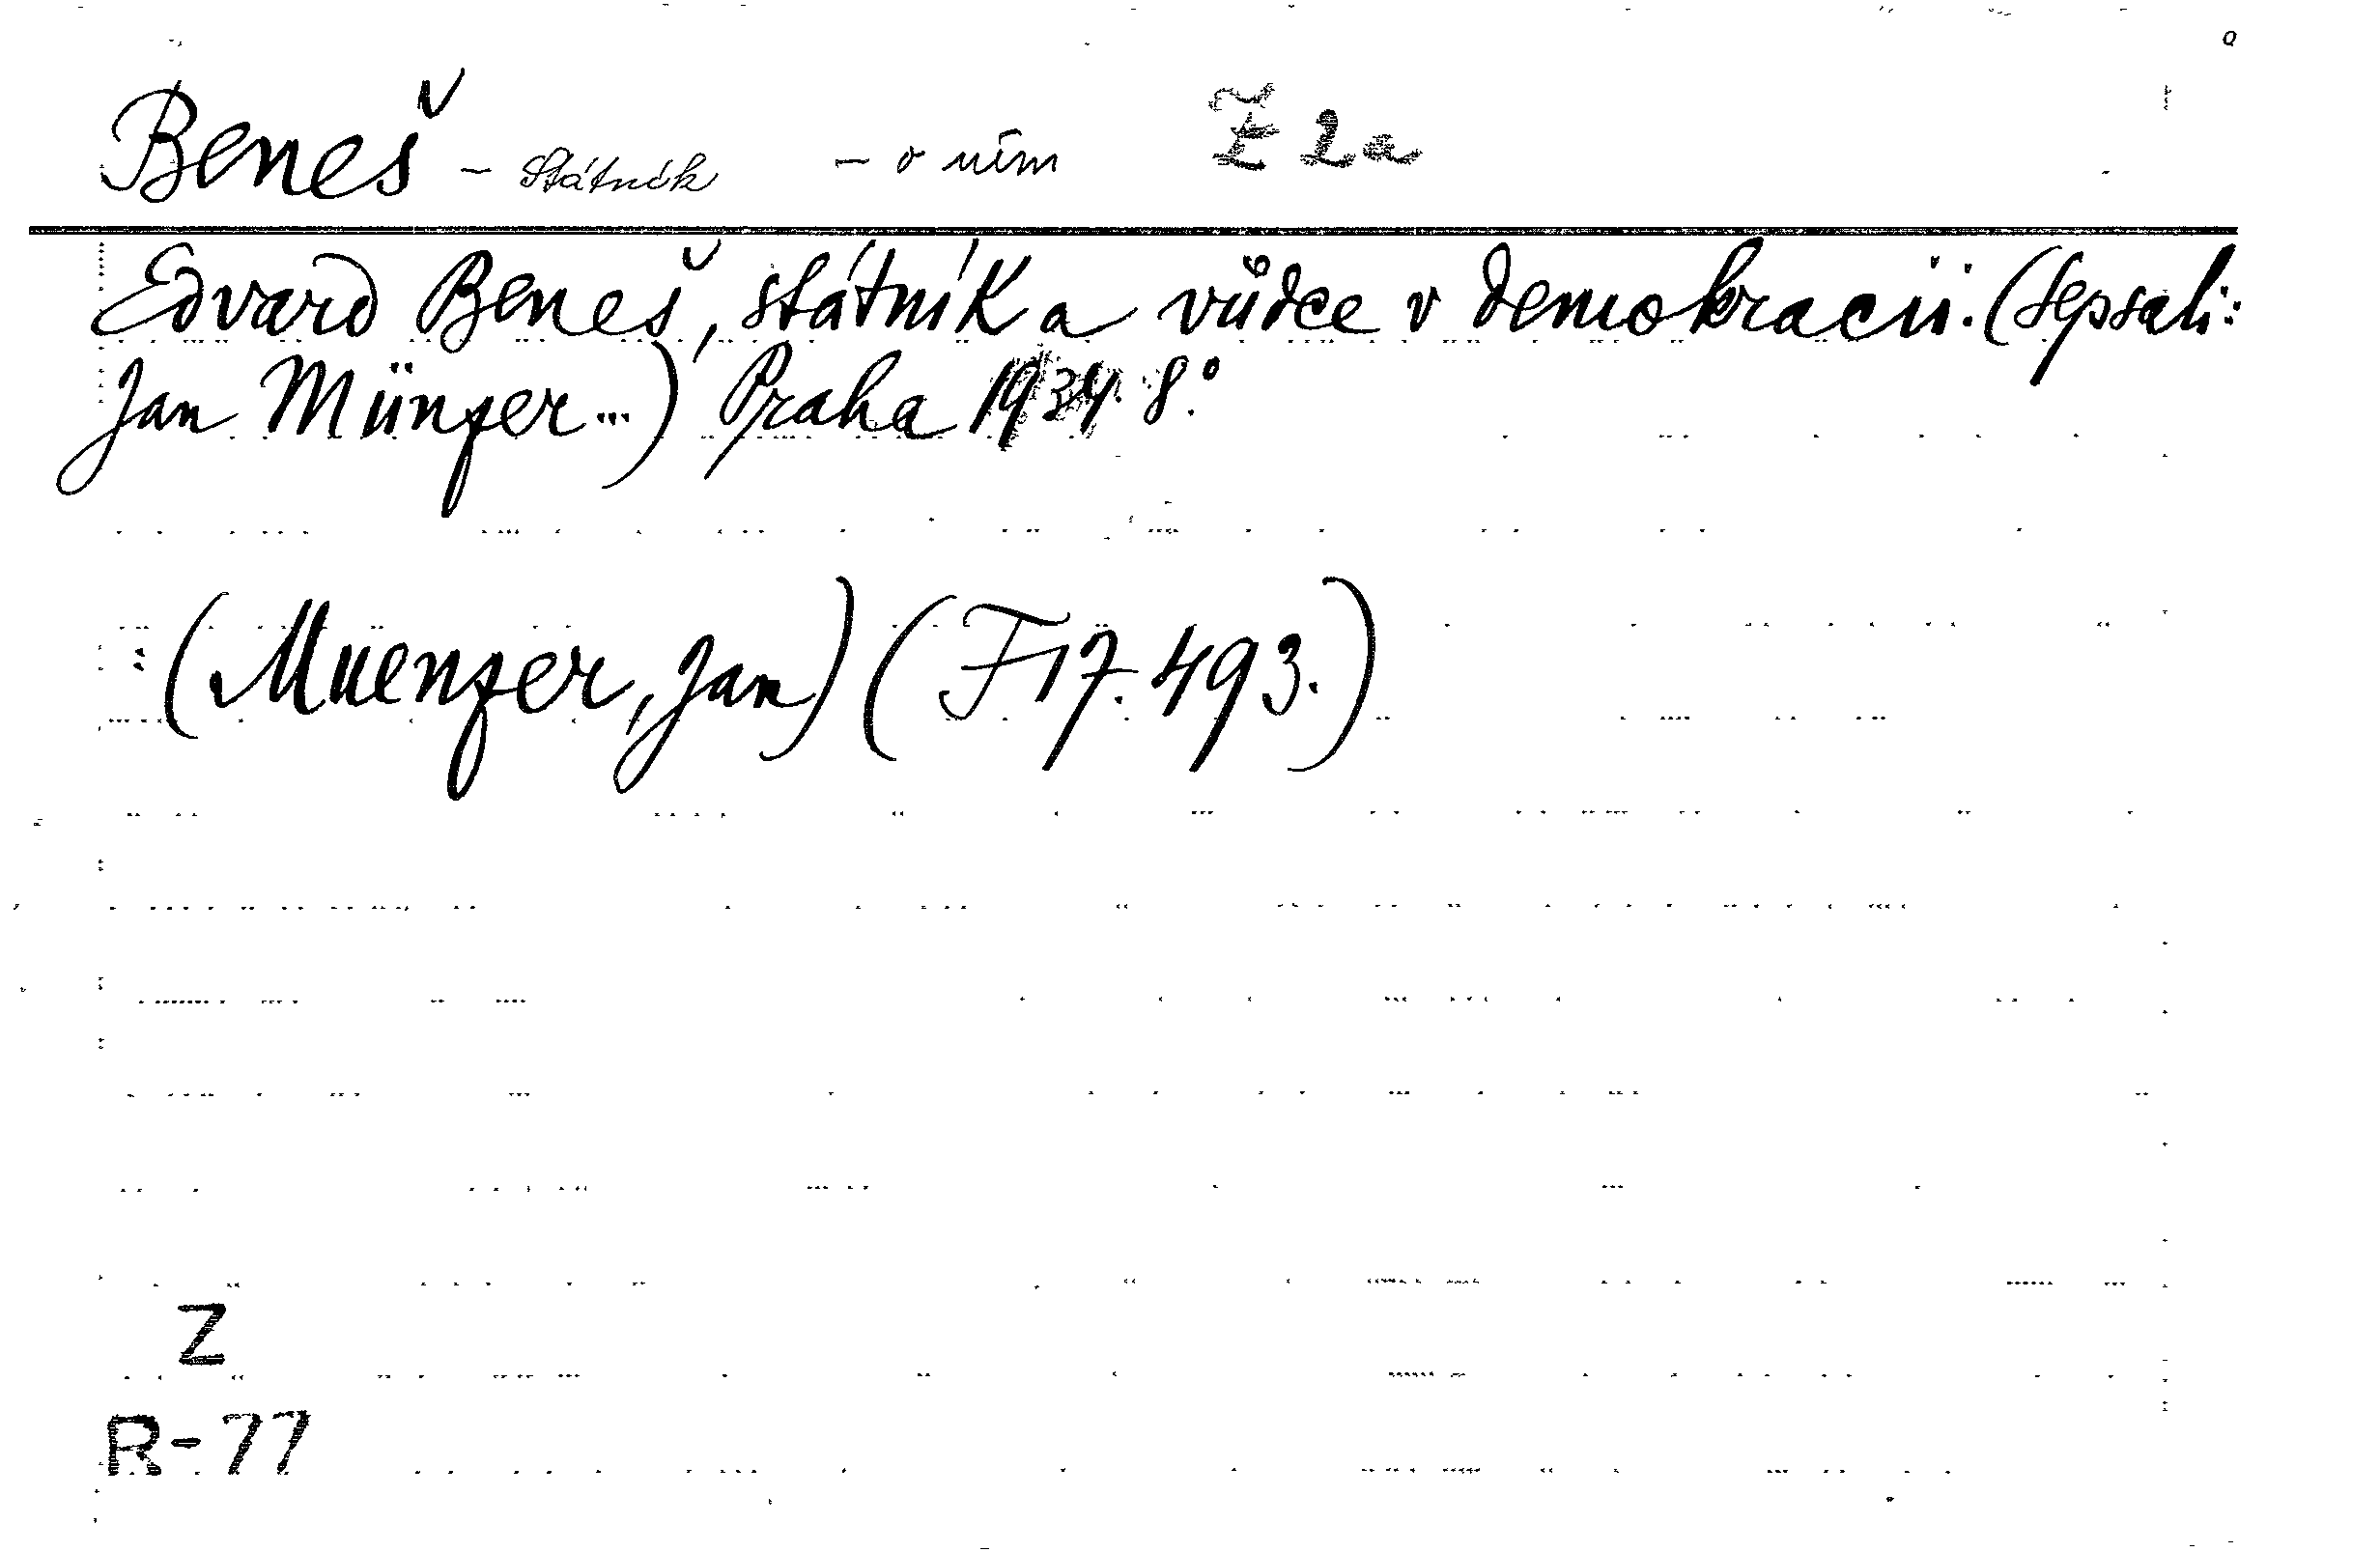 Beneš - Státník - o něm Ž 2a
Edvard Beneš, státník a vůdce v demokracii. (Sepsali:
Jan Münzer...) Praha 1934. 8.°
(Muenzer, Jan) (F 17.493.)
Z
R-77